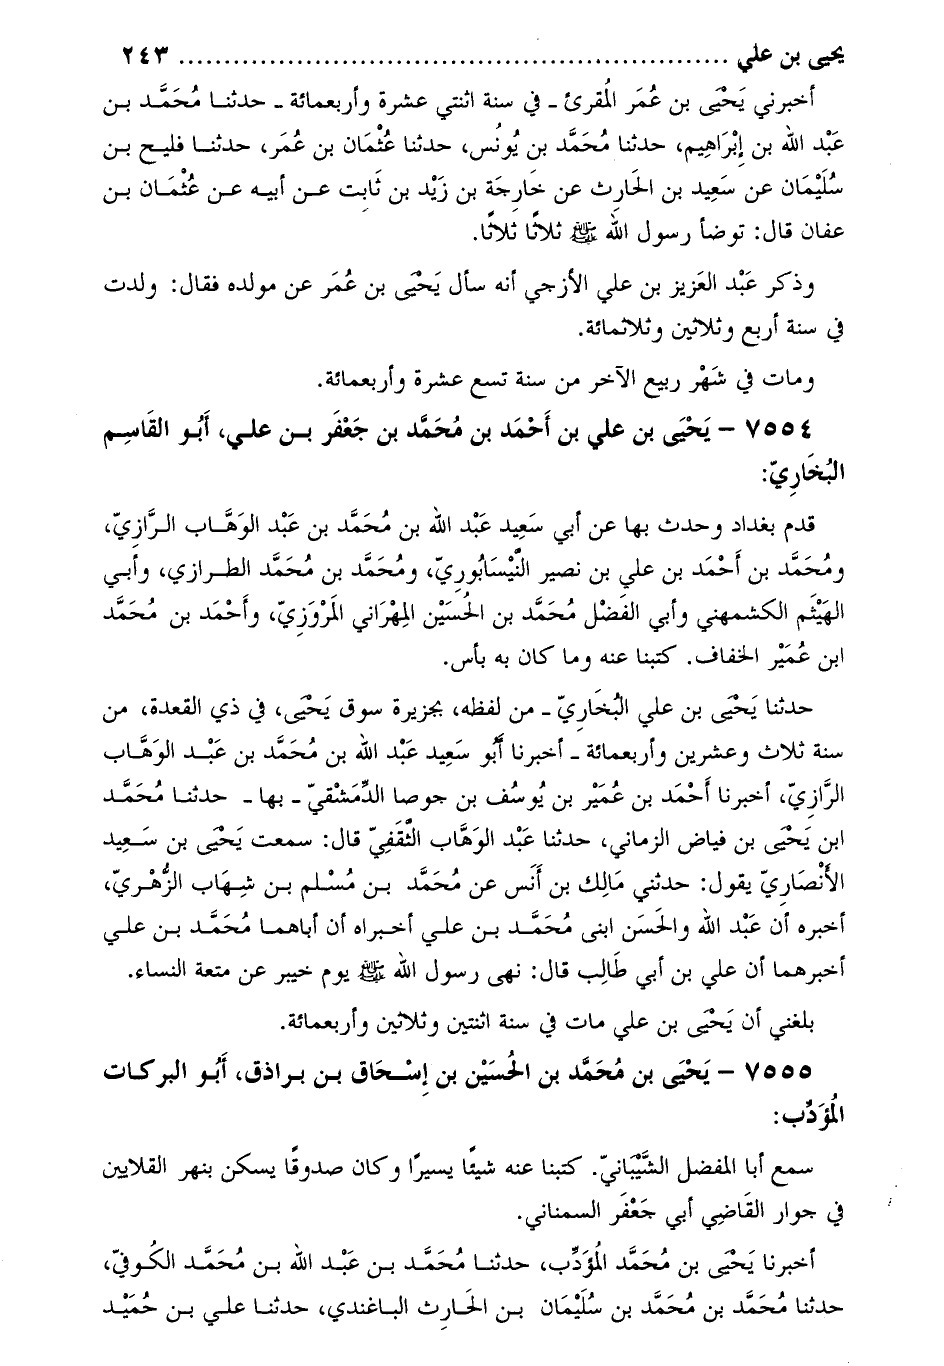 يحيى بن علي ............................................................ ٢٤٣
أخبرني يَحْيَى بن عُمَر المُقرئ ـ في سنة اثنتي عشرة وأربعمائة ـ حدثنا مُحَمَّد بن
عَبْد الله بن إِبْرَاهِيم، حدثنا مُحَمَّد بن يُونُس، حدثنا عُثْمَان بن عُمَر، حدثنا فليح بن
سُلَيْمَان عن سَعِيد بن الحَارِث عن خَارِجَة بن زَيْد بن ثَابِت عن أبيه عن عُثْمَان بن
عفان قال: توضأ رسول الله ﷺ ثلاثًا ثلاثًا.
وذكر عَبْد العَزِيز بن علي الأزجي أنه سأل يَحْيَى بن عُمَر عن مولده فقال: ولدت
في سنة أربع وثلاثين وثلاثمائة.
ومات في شَهْر ربيع الآخر من سنة تسع عشرة وأربعمائة.
٧٥٥٤ – يَحْيَى بن علي بن أَحْمَد بن مُحَمَّد بن جَعْفَر بن علي، أَبُو القَاسِم
البُخَارِيّ:
قدم بغداد وحدث بها عن أبي سَعِيد عَبْد الله بن مُحَمَّد بن عَبْد الوَهَّاب الرَّازِيّ،
ومُحَمَّد بن أَحْمَد بن علي بن نصير النَّيْسَابُوريّ، ومُحَمَّد بن مُحَمَّد الطرازي، وأبي
الهَيْثَم الكشمهني وأبي الفَضْل مُحَمَّد بن الحُسَيْن المِهْرَاني المَرْوَزِيّ، وأَحْمَد بن مُحَمَّد
ابن عُمَيْر الخفاف. كتبنا عنه وما كان به بأس.
حدثنا يَحْيَى بن علي البُخَارِيّ ـ من لفظه، بجزيرة سوق يَحْيَى، في ذي القعدة، من
سنة ثلاث وعشرين وأربعمائة ـ أخبرنا أَبُو سَعِيد عَبْد الله بن مُحَمَّد بن عَبْد الوَهَّاب
الرَّازِيّ، أخبرنا أَحْمَد بن عُمَيْر بن يُوسُف بن جوصا الدِّمَشْقيّ ـ بها ـ حدثنا مُحَمَّد
ابن يَحْيَى بن فياض الزماني، حدثنا عَبْد الوَهَّاب الثَّقَفِيّ قال: سمعت يَحْيَى بن سَعِيد
الأَنْصَارِيّ يقول: حدثني مَالِك بن أَنَس عن مُحَمَّد بن مُسْلم بن شِهَاب الزُّهْريّ،
أخبره أن عَبْد الله والحَسَن ابنى مُحَمَّد بن علي أخبراه أن أباهما مُحَمَّد بن علي
أخبرهما أن علي بن أبي طَالِب قال: نهى رسول الله ﷺ يوم خيبر عن متعة النساء.
بلغني أن يَحْيَى بن علي مات في سنة اثنتين وثلاثين وأربعمائة.
٧٥٥٥ – يَحْيَى بن مُحَمَّد بن الحُسَيْن بن إِسْحَاق بن براذق، أَبُو البركات
المُؤَدِّب:
سمع أبا المفضل الشَّيْبَانيّ. كتبنا عنه شيئًا يسيرًا وكان صدوقًا يسكن بنهر القلايين
في جوار القَاضِي أبي جَعْفَر السمناني.
أخبرنا يَحْيَى بن مُحَمَّد المُؤَدِّب، حدثنا مُحَمَّد بن عَبْد الله بن مُحَمَّد الكُوفيّ،
حدثنا مُحَمَّد بن مُحَمَّد بن سُلَيْمَان بن الحَارِث الباغندي، حدثنا علي بن حُمَيْد